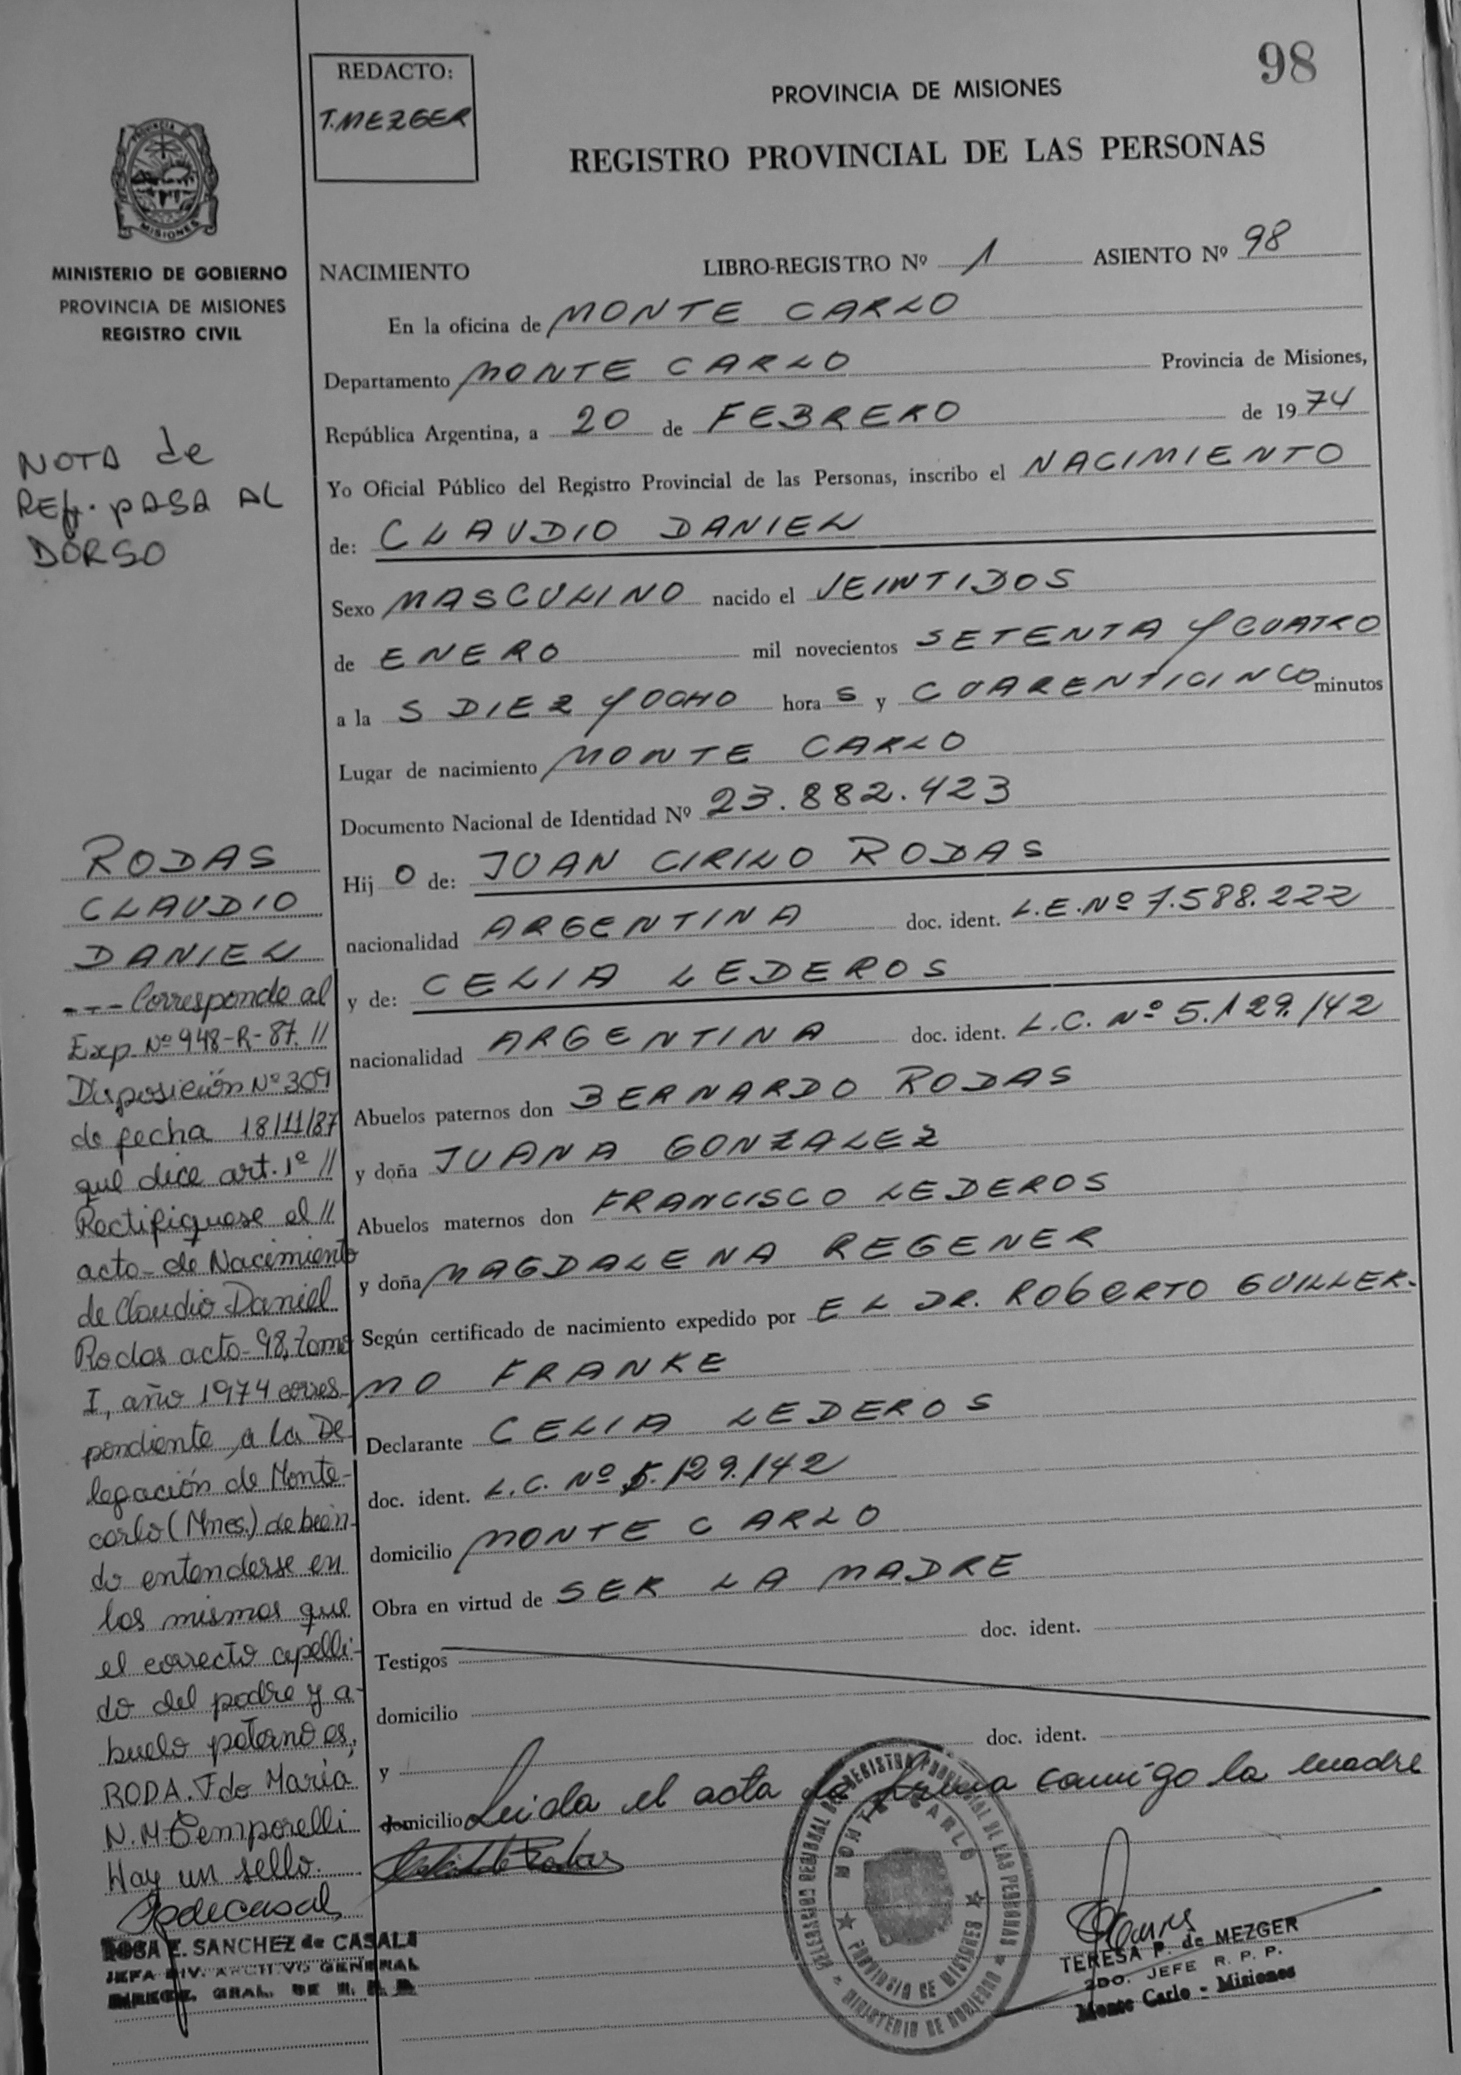 98
REDACTO:
T. MEZGER
PROVINCIA DE MISIONES
REGISTRO PROVINCIAL DE LAS PERSONAS
MISIONES
MINISTERIO DE GOBIERNO
PROVINCIA DE MISIONES
REGISTRO CIVIL
NACIMIENTO LIBRO-REGISTRO Nº 1 ASIENTO Nº 98
En la oficina de MONTE CARLO
Departamento MONTE CARLO Provincia de Misiones,
República Argentina, a 20 de FEBRERO de 1974
Yo Oficial Público del Registro Provincial de las Personas, inscribo el NACIMIENTO
de: CLAUDIO DANIEL
Sexo MASCULINO nacido el VEINTIDOS
de ENERO mil novecientos SETENTA Y CUATRO
a la S DIEZ Y OCHO hora S y CUARENTICINCO minutos
Lugar de nacimiento MONTE CARLO
Documento Nacional de Identidad Nº 23.882.423
Hij O de: JUAN CIRILO RODAS
nacionalidad ARGENTINA doc. ident. L.E.Nº 7.588.222
y de: CELIA LEDEROS
nacionalidad ARGENTINA doc. ident. L.C. Nº 5.129.142
Abuelos paternos don BERNARDO RODAS
y doña JUANA GONZALEZ
Abuelos maternos don FRANCISCO LEDEROS
y doña MAGDALENA REGENER
Según certificado de nacimiento expedido por EL DR. ROBERTO GUILLER-
MO FRANKE
Declarante CELIA LEDEROS
doc. ident. L.C. Nº 5.129.142
domicilio MONTE CARLO
Obra en virtud de SER LA MADRE
Testigos doc. ident.
domicilio
y doc. ident.
domicilio Leida el acta la firma conmigo la madre
NOTA de
REf. PASA AL
DORSO
RODAS
CLAUDIO
DANIEL
--- Corresponde al
Exp. Nº 948-R-87. //
Disposición Nº 309
de fecha 18/11/87
que dice art. 1º //
Rectifiquese el //
acta de Nacimiento
de Claudio Daniel
Rodas acta 98, tomo
I, año 1974 corres-
pondiente a la De-
legación de Monte-
carlo (Mnes.) debien-
do entenderse en
los mismos que
el correcto apelli-
do del padre y a-
buelo paterno es,
RODA. Fdo María
N. M. Temporelli
Hay un sello.
ROSA E. SANCHEZ de CASALI
JEFA DIV. ARCHIVO GENERAL
DIRECC. GRAL. DE R. P. P.
DELEGACION REGIONAL DEL REGISTRO PROVINCIAL DE LAS PERSONAS
MONTE CARLO
PROVINCIA DE MISIONES
MINISTERIO DE GOBIERNO
TERESA P. de MEZGER
2DO. JEFE R. P. P.
Monte Carlo - Misiones